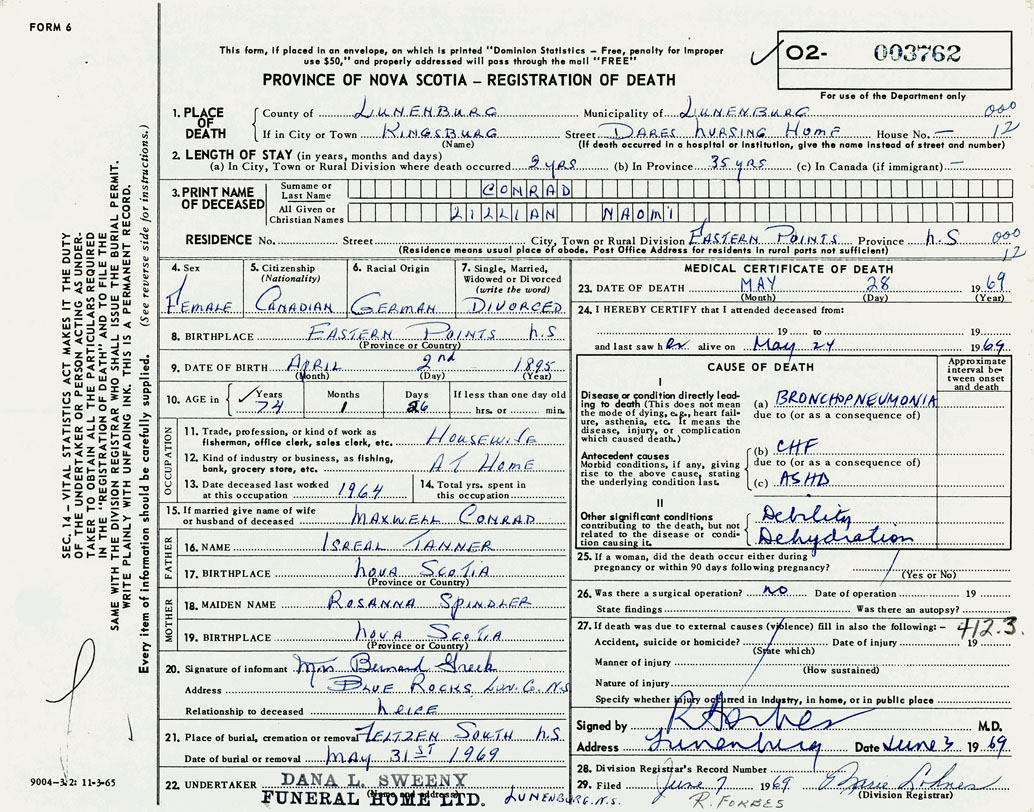 FORM 6
This form, if placed in an envelope, on which is printed "Dominion Statistics – Free, penalty for improper
use $50," and properly addressed will pass through the mail "FREE"
PROVINCE OF NOVA SCOTIA – REGISTRATION OF DEATH
02- 003762
For use of the Department only
1. PLACE OF DEATH
County of LUNENBURG Municipality of LUNENBURG 000
If in City or Town KINGSBURG Street DARES NURSING HOME House No. – 12
(Name) (If death occurred in a hospital or institution, give the name instead of street and number)
2. LENGTH OF STAY (in years, months and days)
(a) In City, Town or Rural Division where death occurred 2 yrs (b) In Province 35 yrs (c) In Canada (if immigrant) –
3. PRINT NAME OF DECEASED
Surname or Last Name CONRAD
All Given or Christian Names LILLIAN NAOMI
RESIDENCE No. Street City, Town or Rural Division EASTERN POINTS Province N.S 000
(Residence means usual place of abode. Post Office Address for residents in rural parts not sufficient) 12
4. Sex FEMALE
5. Citizenship (Nationality) CANADIAN
6. Racial Origin GERMAN
7. Single, Married, Widowed or Divorced (write the word) DIVORCED
8. BIRTHPLACE EASTERN POINTS N.S
(Province or Country)
9. DATE OF BIRTH APRIL 2nd 1895
(Month) (Day) (Year)
10. AGE in Years Months Days If less than one day old
74 1 26 hrs. or min.
OCCUPATION
11. Trade, profession, or kind of work as
fisherman, office clerk, sales clerk, etc. HOUSEWIFE
12. Kind of industry or business, as fishing,
bank, grocery store, etc. AT HOME
13. Date deceased last worked
at this occupation 1964
14. Total yrs. spent in
this occupation
15. If married give name of wife
or husband of deceased MAXWELL CONRAD
FATHER
16. NAME ISREAL TANNER
17. BIRTHPLACE NOVA SCOTIA
(Province or Country)
MOTHER
18. MAIDEN NAME ROSANNA SPINDLER
19. BIRTHPLACE NOVA SCOTIA
(Province or Country)
20. Signature of informant Mrs Bernard Greek
Address BLUE ROCKS LUN. CO. N.S
Relationship to deceased NEICE
21. Place of burial, cremation or removal FELTZEN SOUTH N.S
Date of burial or removal MAY 31ST 1969
22. UNDERTAKER DANA L. SWEENY
(Name and address)
FUNERAL HOME LTD. LUNENBURG. N.S.
MEDICAL CERTIFICATE OF DEATH
23. DATE OF DEATH MAY 28 1969
(Month) (Day) (Year)
24. I HEREBY CERTIFY that I attended deceased from:
19 to 19
and last saw her alive on May 24 1969
CAUSE OF DEATH
Approximate interval between onset and death
I
Disease or condition directly leading to death (This does not
the mode of dying, e.g., heart failure, asthenia, etc. It means the
disease, injury, or complication
which caused death.)
(a) BRONCHOPNEUMONIA
due to (or as a consequence of)
Antecedent causes
Morbid conditions, if any, giving
rise to the above cause, stating
the underlying condition last.
(b) CHF
due to (or as a consequence of)
(c) ASHD
II
Other significant conditions
contributing to the death, but not
related to the disease or condition causing it.
Debility
Dehydration
25. If a woman, did the death occur either during
pregnancy or within 90 days following pregnancy?
(Yes or No)
26. Was there a surgical operation? no Date of operation 19
State findings Was there an autopsy?
27. If death was due to external causes (violence) fill in also the following: – 412.3.
Accident, suicide or homicide? Date of injury 19
(State which)
Manner of injury
(How sustained)
Nature of injury
Specify whether injury occurred in Industry, in home, or in public place
Signed by R Forbes M.D.
Address Lunenburg Date June 3 1969
28. Division Registrar's Record Number
29. Filed June 7 1969
(Division Registrar)
R. FORBES
SEC. 14 – VITAL STATISTICS ACT MAKES IT THE DUTY
OF THE UNDERTAKER OR PERSON ACTING AS UNDER-
TAKER TO OBTAIN ALL THE PARTICULARS REQUIRED
IN THE "REGISTRATION OF DEATH" AND TO FILE THE
SAME WITH THE DIVISION REGISTRAR WHO SHALL ISSUE THE BURIAL PERMIT.
WRITE PLAINLY WITH UNFADING INK. THIS IS A PERMANENT RECORD.
Every item of information should be carefully supplied. (See reverse side for instructions.)
9004-3.2: 11-3-65